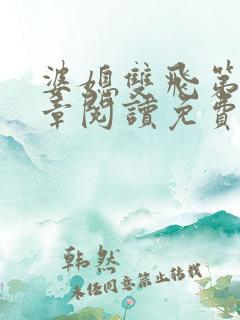 婆媳雙飛第
章閱讀免費
韩然
未经同意禁止转载